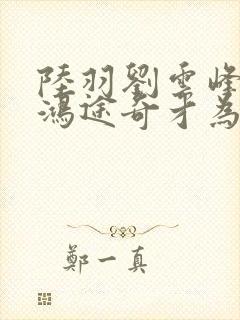 陸羽劉雲峰
鴻途奇才為
鄭一真